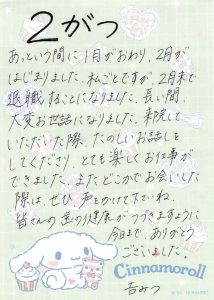 2がつ
あっという間に1月がおわり、2月が
はじまりました。私ごとですが、2月末で
退職することになりました。長い間、
大変お世話になりました。来院して
いただいた際、たのしいお話しを
してくださり、とても楽しくお仕事が
できました。またどこかでお会いした
際は、ぜひ、声をかけて下さいね。
皆さんの歯の健康がつづきますように
今日まで、ありがとう
ございました。
Cinnamoroll
吉みつ